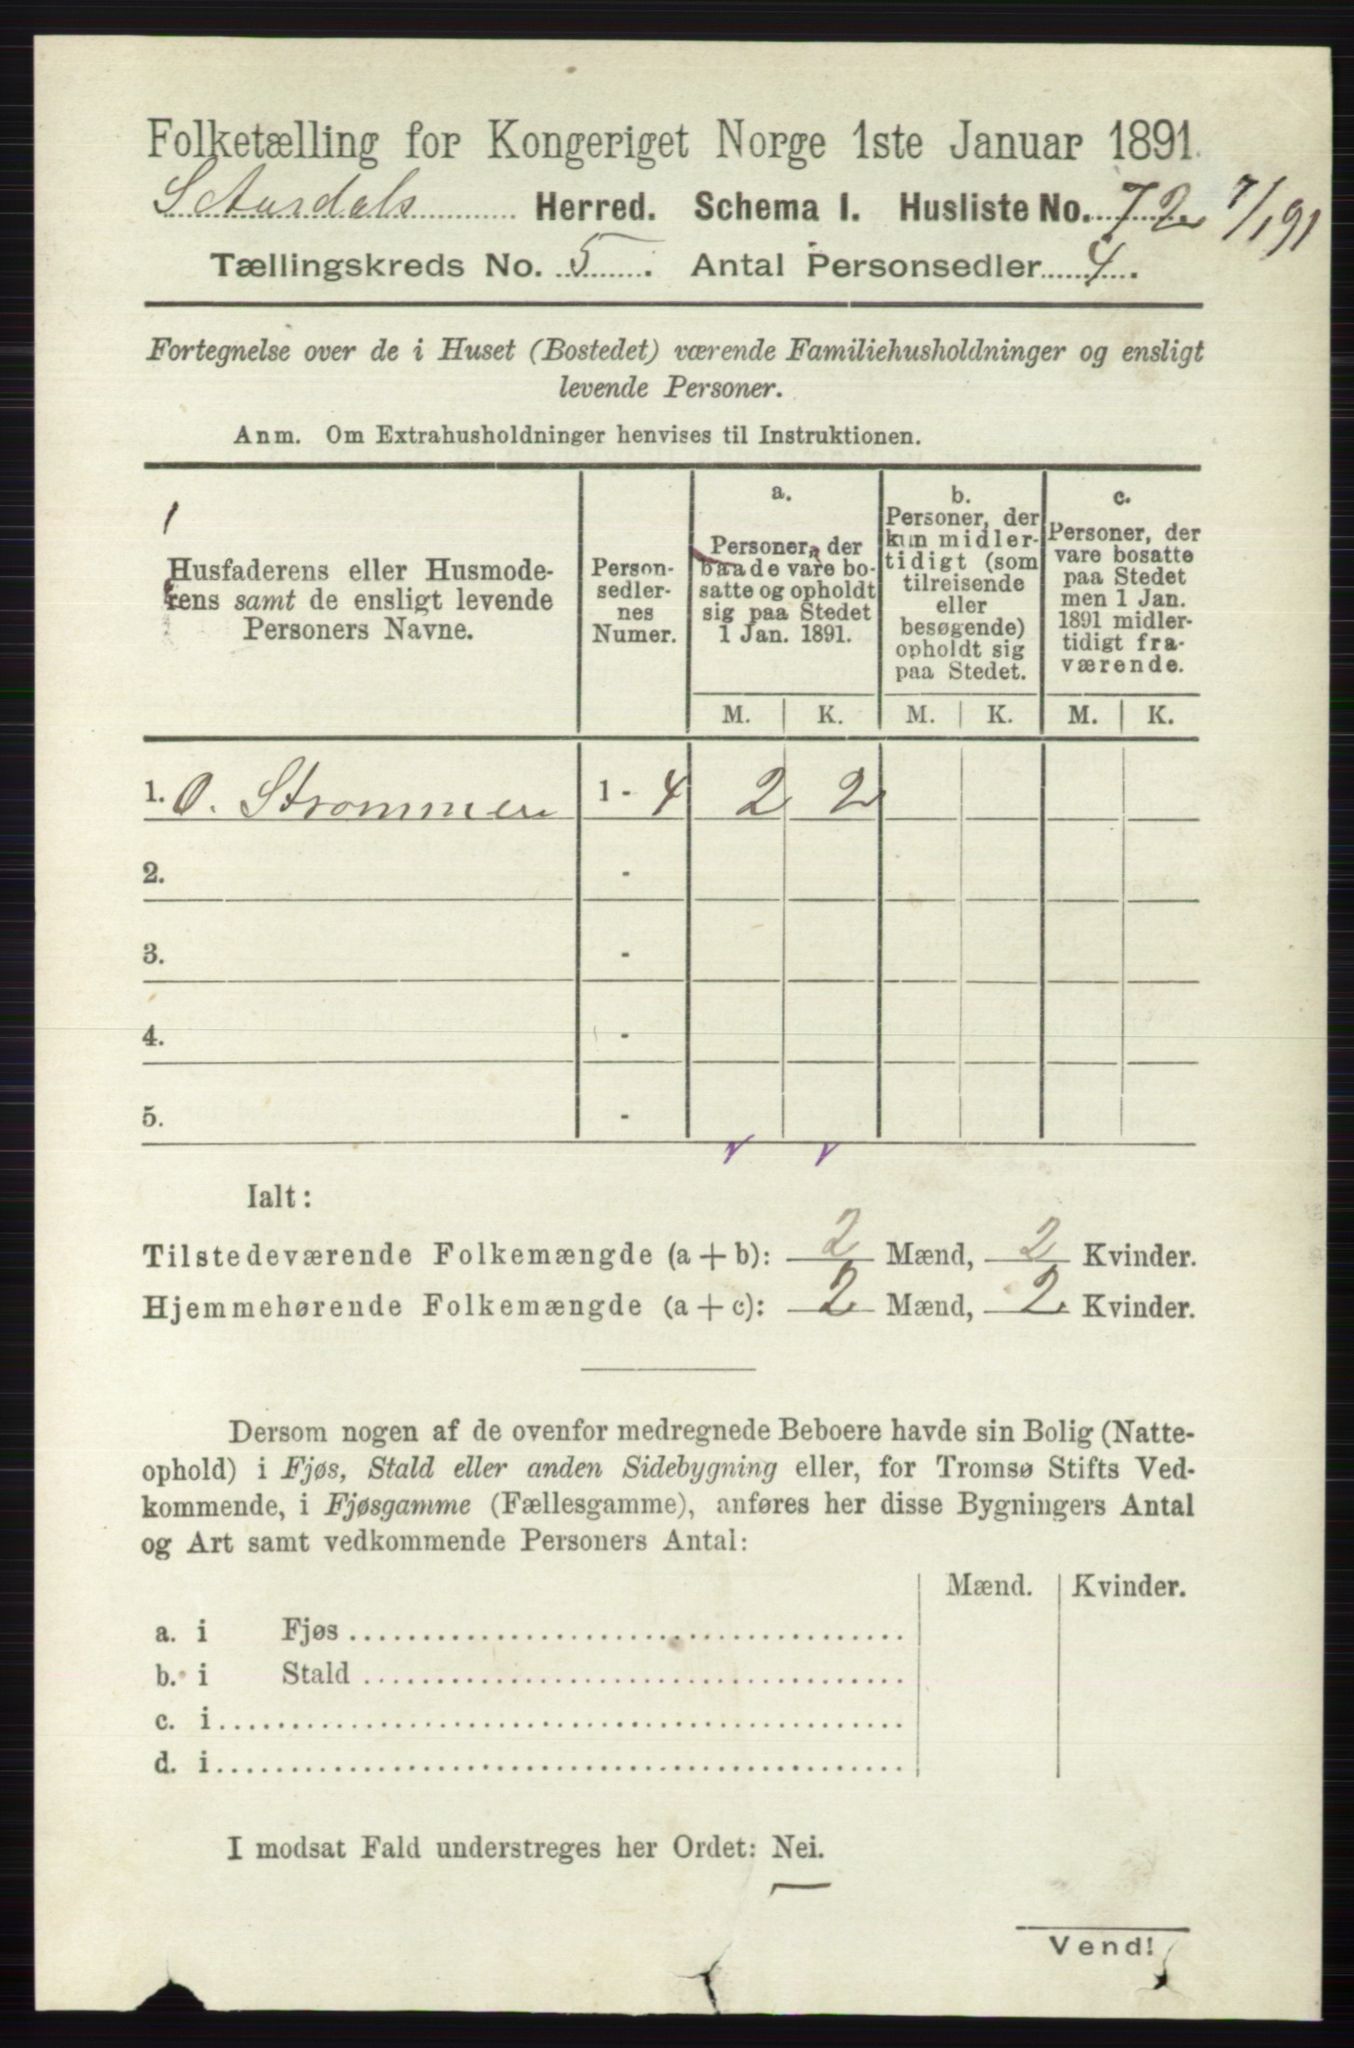 Folketælling for Kongeriget Norge 1ste Januar 1891.
S. Aurdals Herred. Schema I. Husliste No. 72 7/1 91
Tællingskreds No. 5. Antal Personsedler 4.
Fortegnelse over de i Huset (Bostedet) værende Familiehusholdninger og ensligt
levende Personer.
Anm. Om Extrahusholdninger henvises til Instruktionen.
1
Husfaderens eller Husmode-
rens samt de ensligt levende
Personers Navne.
Person-
sedler-
nes
Numer.
a.
Personer, der
baade vare bo-
satte og opholdt
sig paa Stedet
1 Jan. 1891.
b.
Personer, der
kun midler-
tidigt (som
tilreisende
eller
besøgende)
opholdt sig
paa Stedet.
c.
Personer, der
vare bosatte
paa Stedet
men 1 Jan.
1891 midler-
tidigt fra-
værende.
M. K. M. K. M. K.
1. O. Strommen 1 - 4 2 2
2. -
3. -
4. -
5. -
Ialt:
Tilstedeværende Folkemængde (a + b): 2 Mænd, 2 Kvinder.
Hjemmehørende Folkemængde (a + c): 2 Mænd, 2 Kvinder.
Dersom nogen af de ovenfor medregnede Beboere havde sin Bolig (Natte-
ophold) i Fjøs, Stald eller anden Sidebygning eller, for Tromsø Stifts Ved-
kommende, i Fjøsgamme (Fællesgamme), anføres her disse Bygningers Antal
og Art samt vedkommende Personers Antal:
Mænd. Kvinder.
a. i Fjøs
b. i Stald
c. i
d. i
I modsat Fald understreges her Ordet: Nei.
Vend!